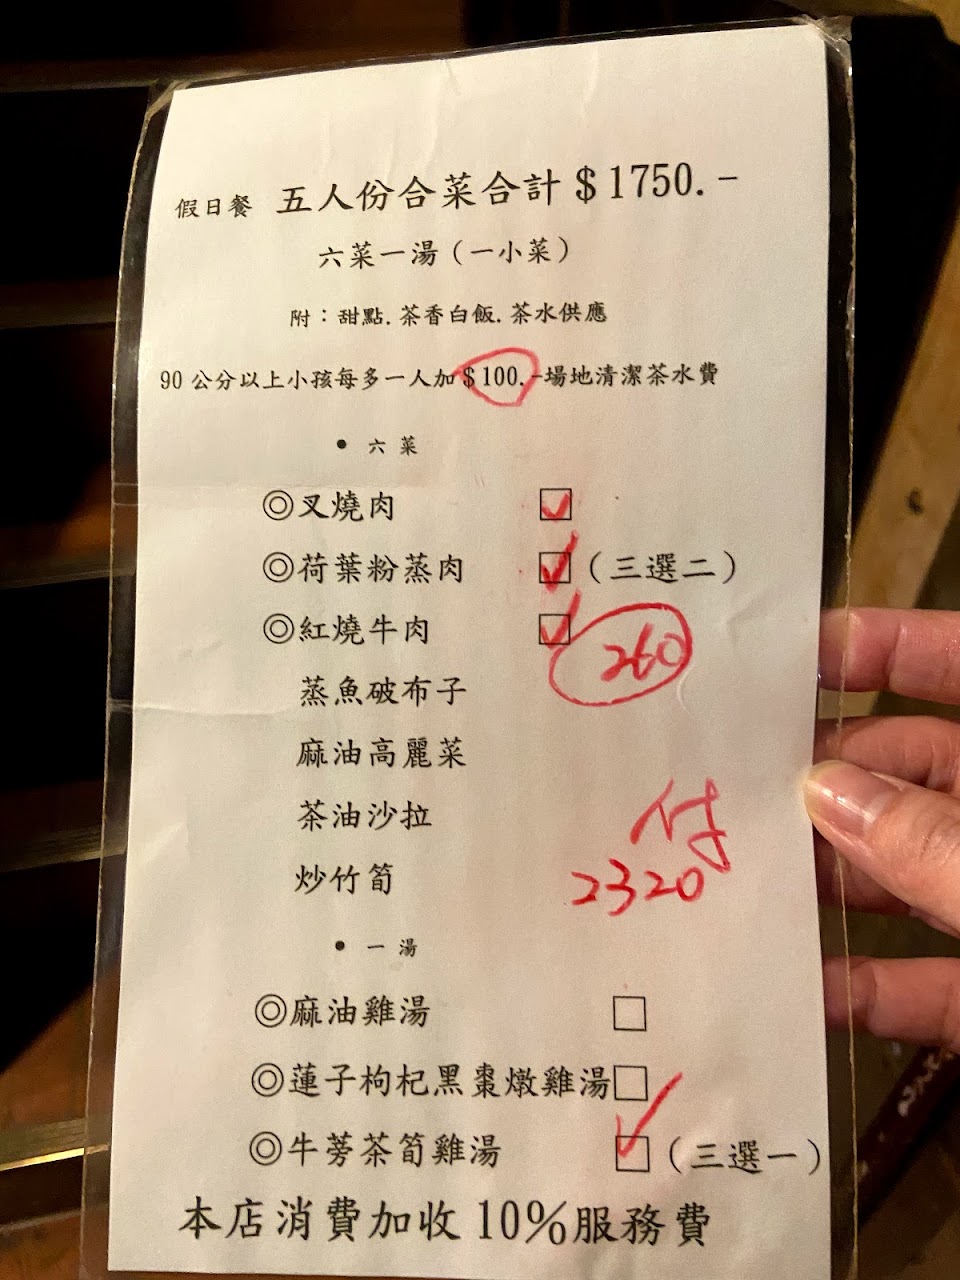 假日餐 五人份合菜合計$1750.-
六菜一湯(一小菜)
附：甜點.茶香白飯.茶水供應
90公分以上小孩每多一人加$100.-場地清潔茶水費
• 六菜
◎叉燒肉 □✓
◎荷葉粉蒸肉 □✓(三選二)
◎紅燒牛肉 □✓ 260
蒸魚破布子
麻油高麗菜
茶油沙拉
炒竹筍
付
2320
• 一湯
◎麻油雞湯 □
◎蓮子枸杞黑棗燉雞湯□
◎牛蒡茶筍雞湯 □✓(三選一)
本店消費加收10%服務費